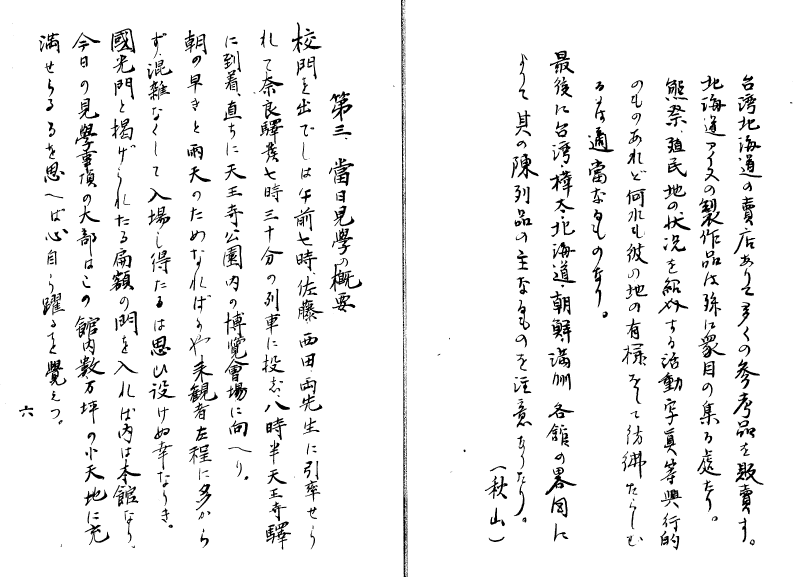 台湾北海道の賣店ありて多くの参考品を販賣す。
北海道アイヌの製作品は殊に衆目の集る處なり。
熊祭、殖民地の状況を紹介する活動写真等興行的
のものあれど何れも彼の地の有様をして彷彿たらしむ
るは適當なるものなり。
最後に台湾・樺太・北海道・朝鮮満洲各館の畧図に
よりて其の陳列品の主なるものを注意すべし。
(秋山)
第三、當日見學の概要
校門を出でしは午前七時佐藤、西田両先生に引率せら
れて奈良驛発七時三十分の列車に投ず、八時半天王寺驛
に到着、直ちに天王寺公園内の博覧會場に向へり。
朝の早きと雨天のためなればにや来観者左程に多から
ず、混雑なくして入場し得たるは思ひ設けぬ幸なりき。
國光門と掲げられたる扁額の門を入れば内は本館なり、
今日の見學事項の大部はこの館内数万坪の小天地に充
満せらるるを思へば心自ら躍るを覺えつ。
六